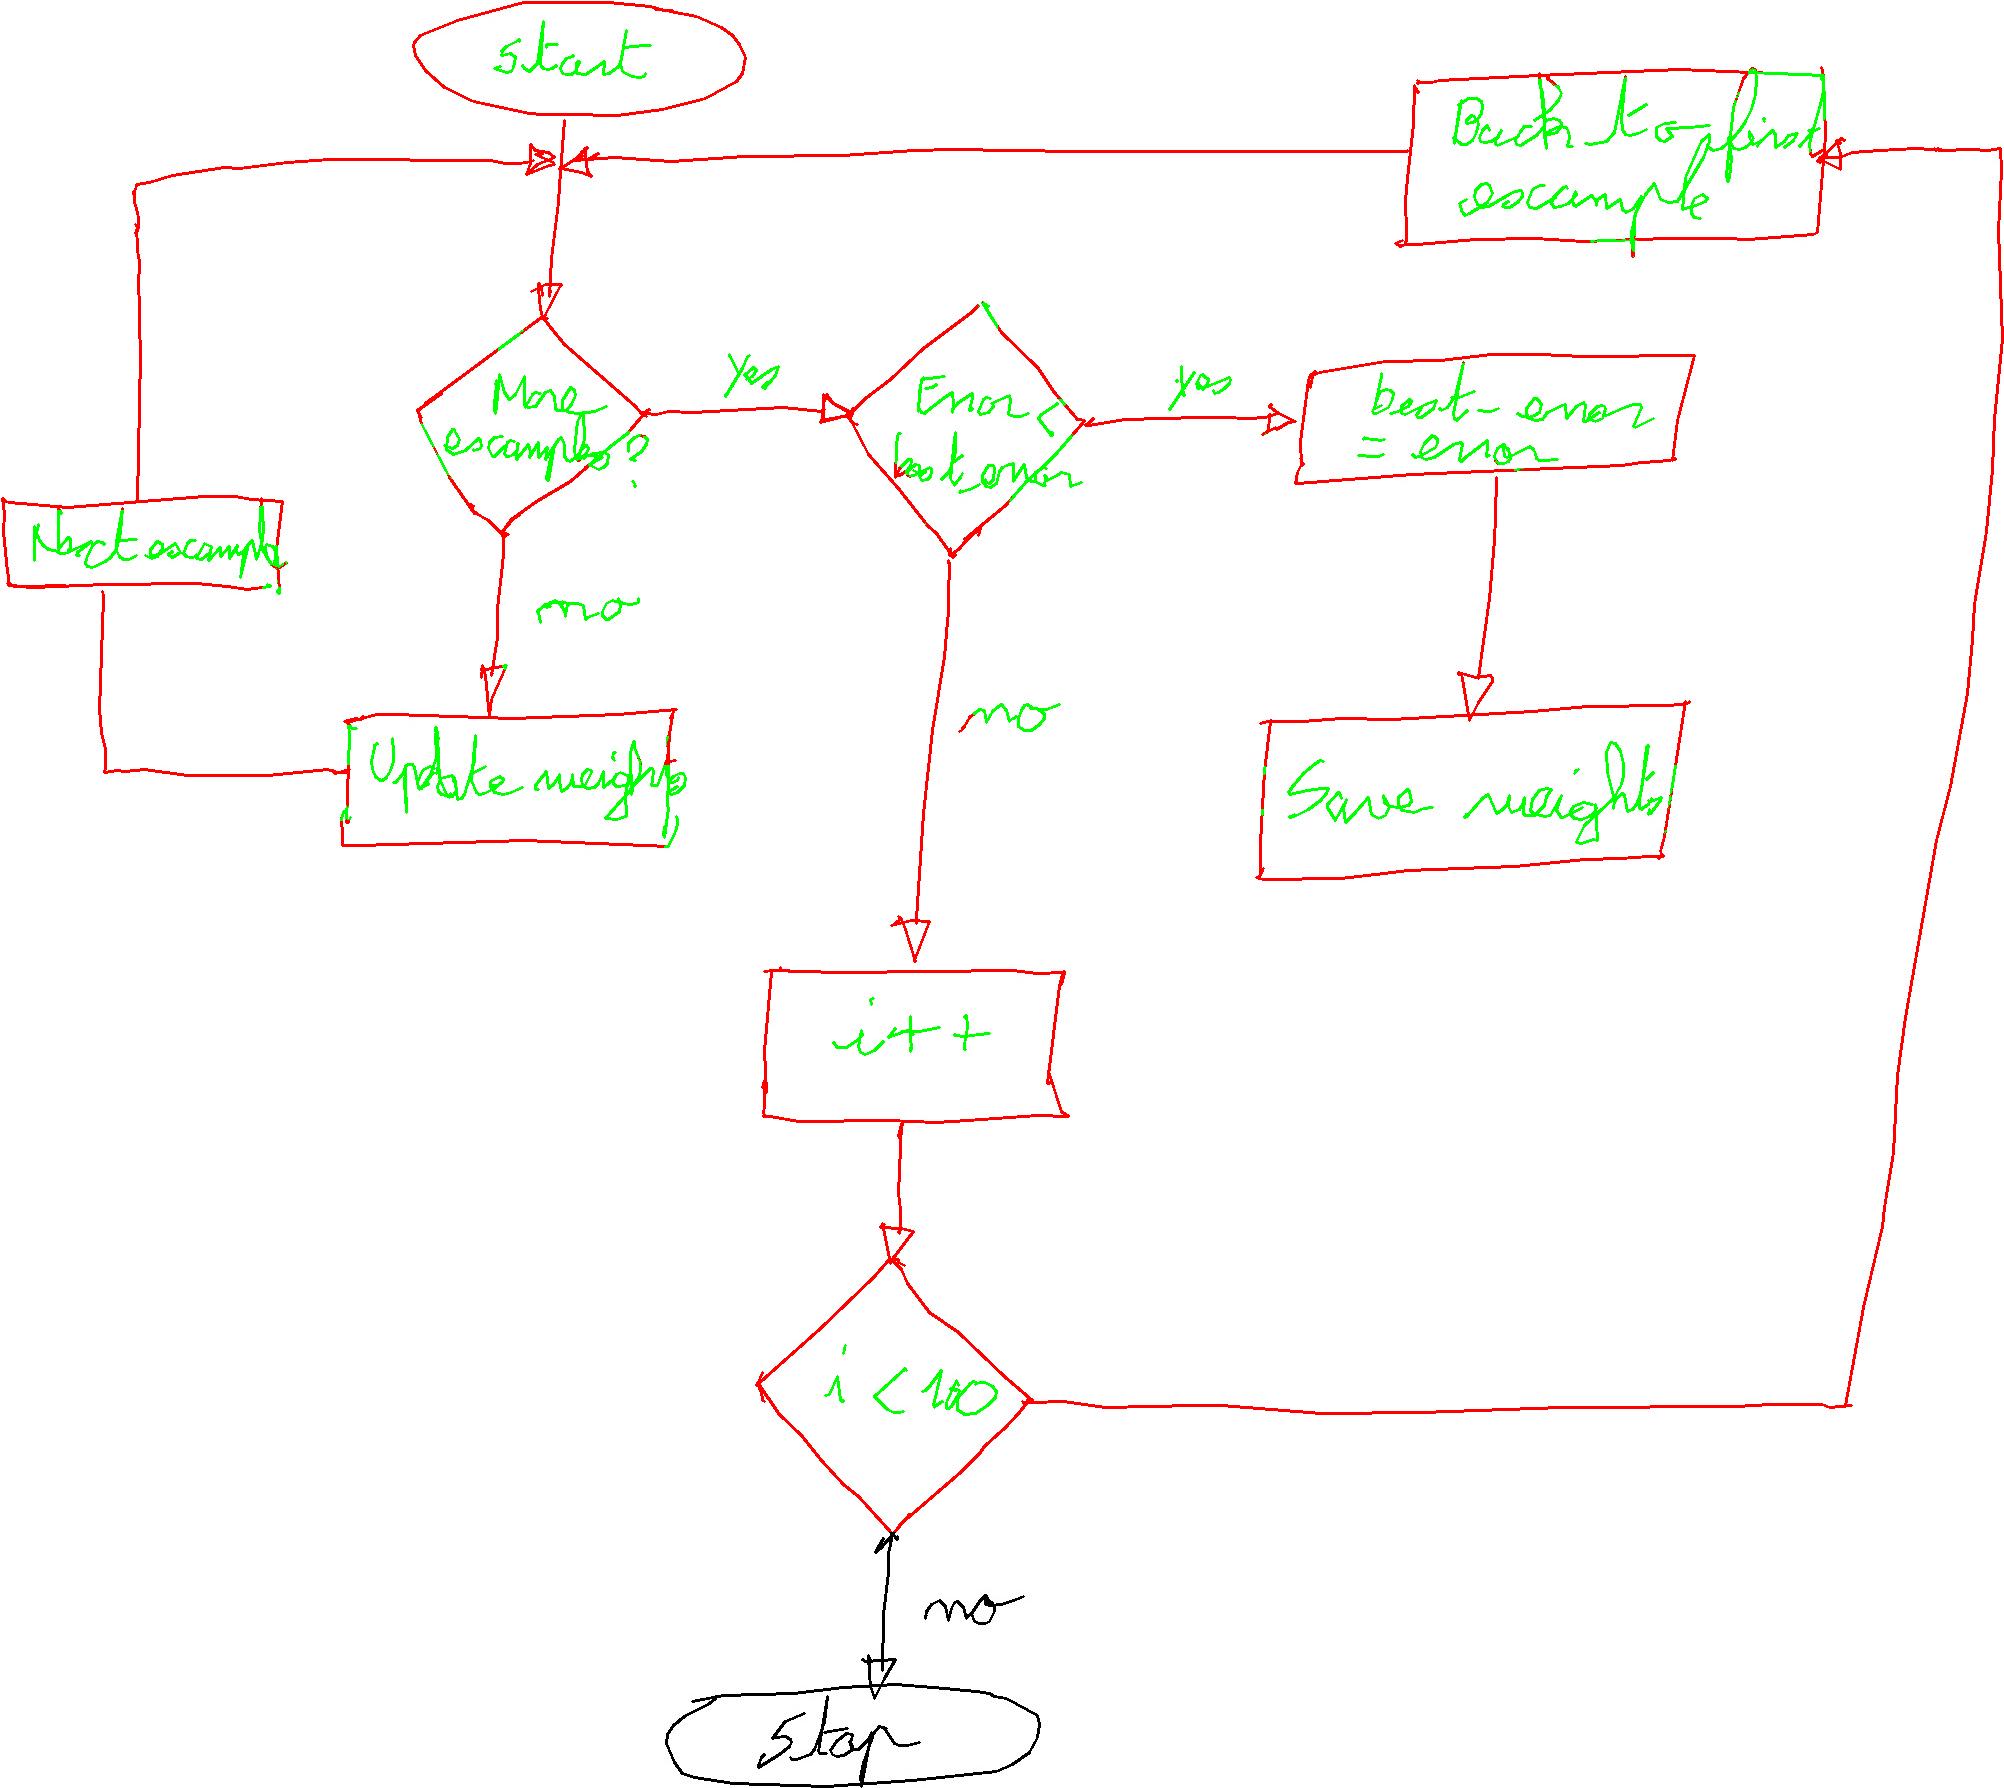 Start
Back to first
example
More
examples?
Yes
Error <
best_error
yes
best_error
= error
Next example
no
no
Update weights
Save weights
i++
i < 100
no
Stop